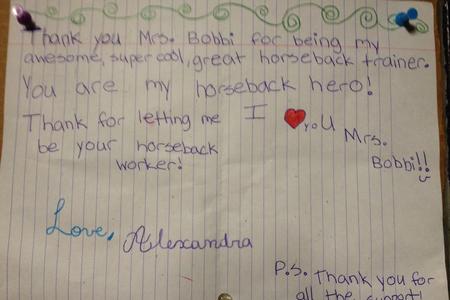 Thank you Mrs. Bobbi for being my
awesome, super cool, great horseback trainer.
You are my horseback hero!
Thank for letting me
be your horseback
worker!
I ❤ you Mrs.
Bobbi!!
Love, Alexandra
P.S. Thank you for
all the support!